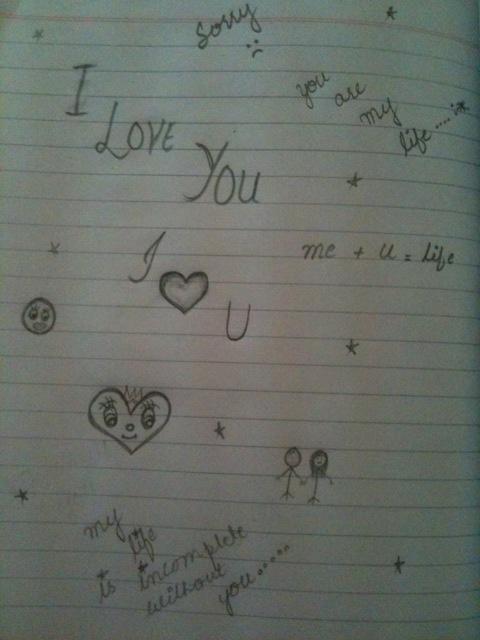 Sorry
:(
I
LOVE
YOU
you are my life....
I ♡ U
me + u = life
my
life
is incomplete
without
you.....